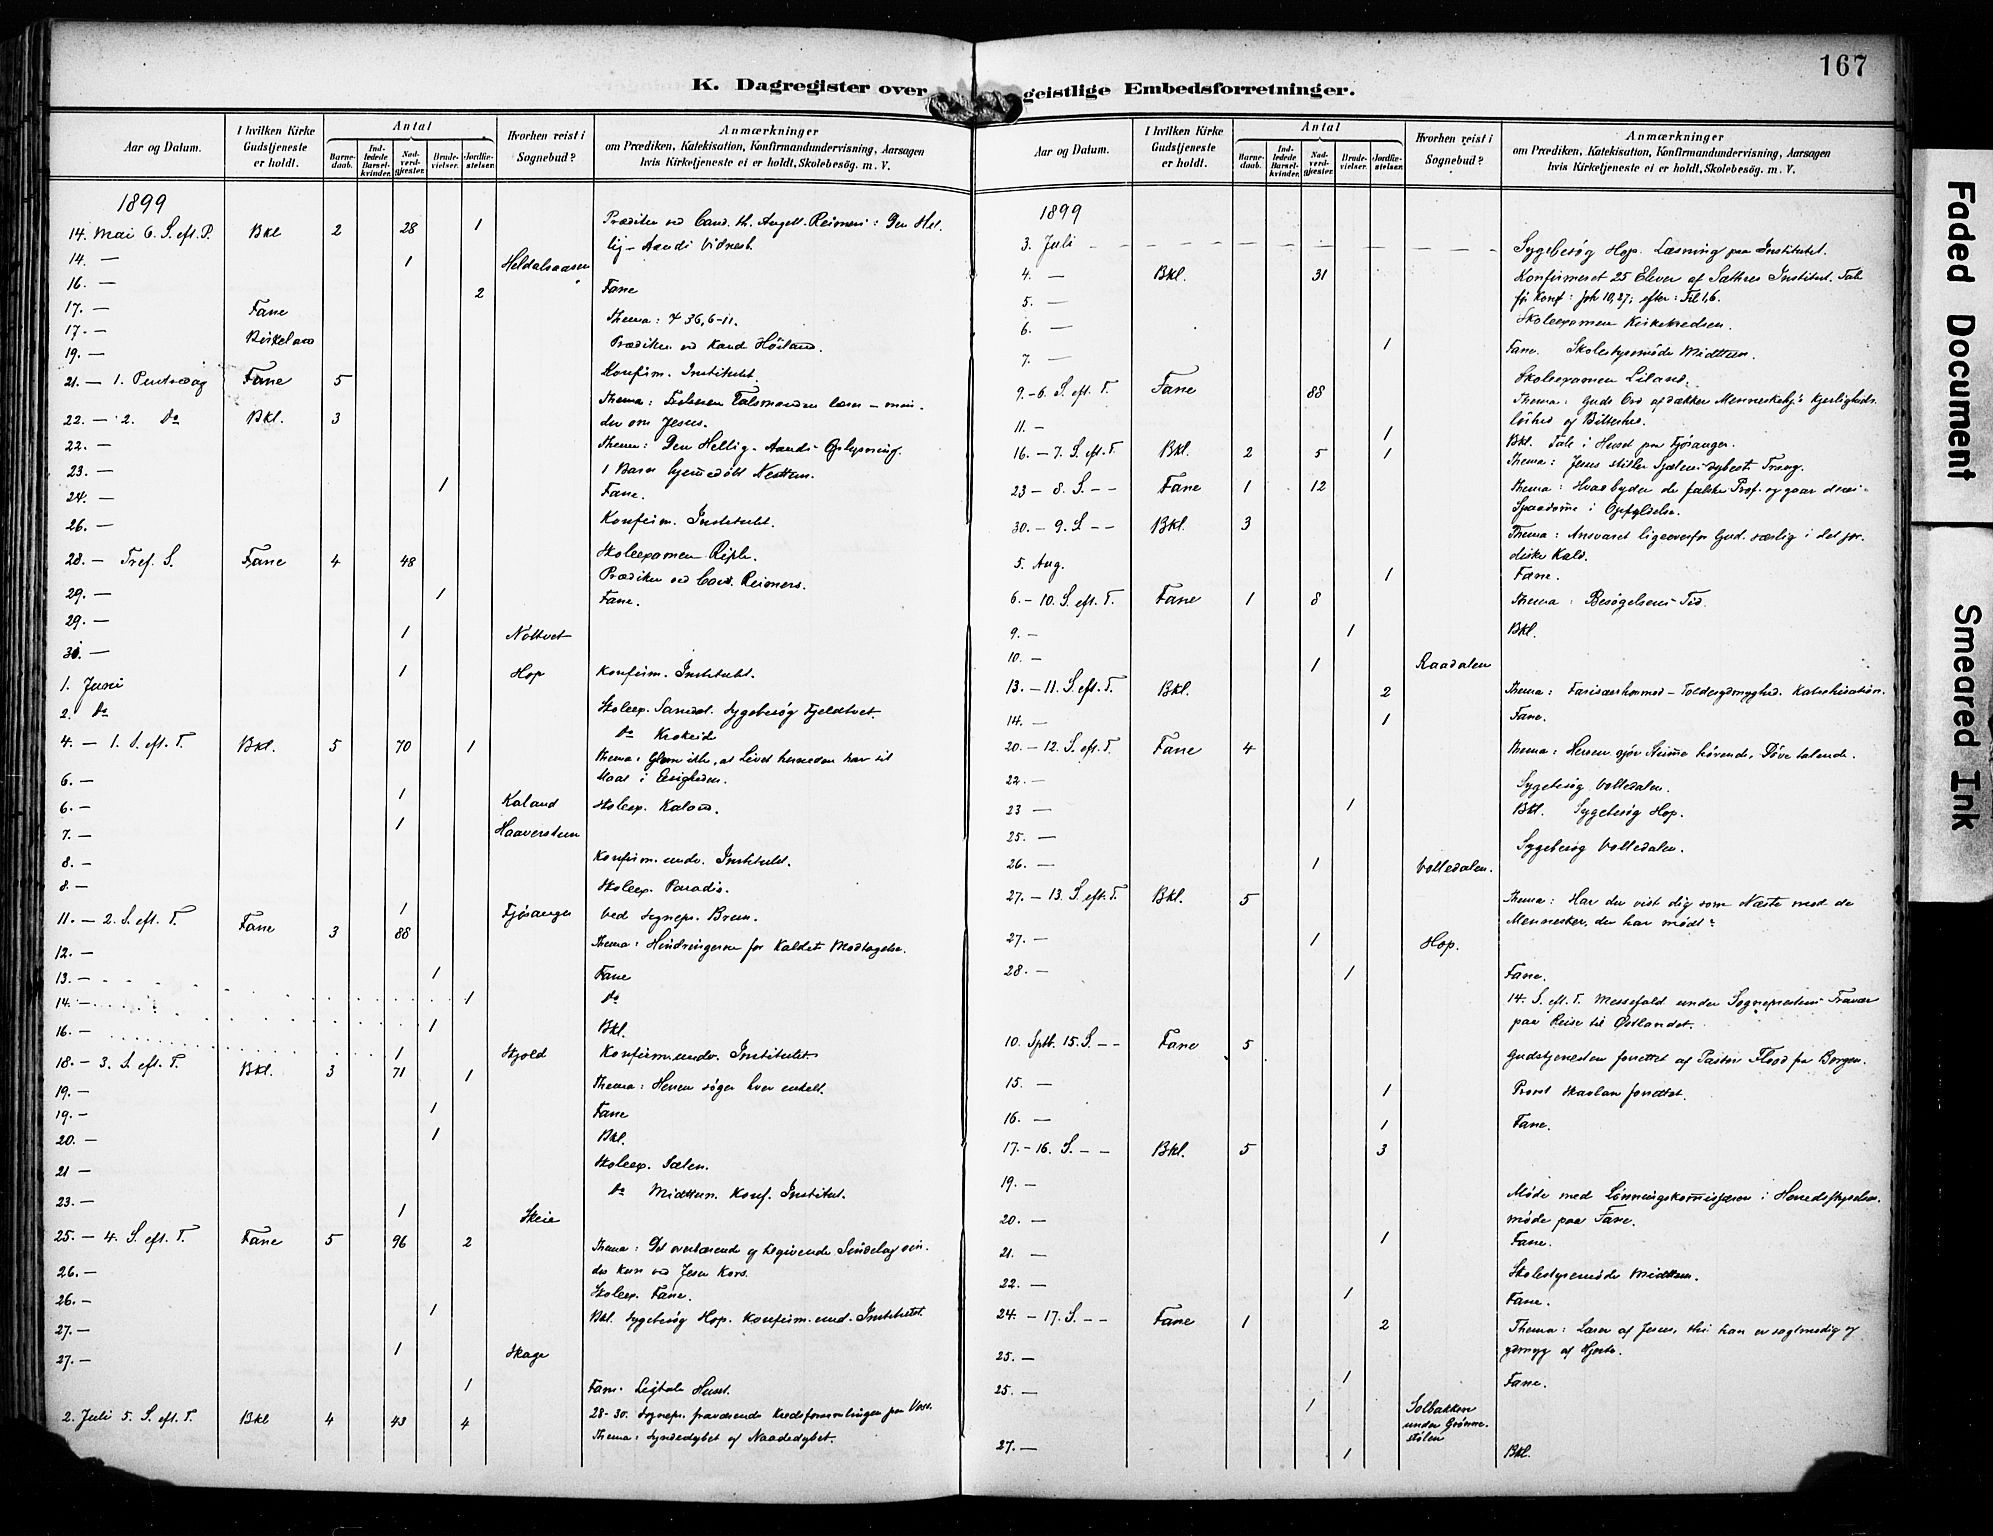 167
K. Dagregister over geistlige Embedsforretninger.
Aar og Datum.
I hvilken Kirke Gudstjeneste er holdt.
Antal
Barnedaab.
Indledede Barselkvinder.
Nadverdgjester.
Brudevielser.
Jordfæstelser.
Hvorhen reist i Sognebud?
Anmærkninger
om Prædiken, Katekisation, Konfirmandundervisning, Aarsagen
hvis Kirketjeneste ei er holdt, Skolebesög. m. V.
1899
14. Mai 6. S. eft. P. Bkl 2 28 1 Prædiken ved Cand. th. Angell-Reimers: Den Hel-
lig-Aands Vidnesb.
14. — 1 Heldalsaasen
16. — 2 Fane
17. — Fane Thema: 36, 6-11.
17. — Birkeland Prædiken ved Kand.
19. — Konfirm. Institutet.
21. — 1. Pintsedag Fane 5 Thema:
22. — 2. Do Bkl. 3 der om Jesus.
22. — Thema: Den Hellig-Aands Oplysning.
23. — 1 Barn hjemmedöbt Nesttun.
24. — 1 Fane.
26. — Konfirm. Institutet.
28. — Tref. S. Fane 4 48 Skoleexamen
Prædiken ved Cand. Reimers.
29. — 1 Fane.
29. — 1 Nöttvet
30. —
1. Juni 1 Hop Konfirm. Institutet.
2. Do Skoleex. Sandal. Sygebesög Fjeldtvet.
Do Krokeide
4. — 1. S. eft. T. Bkl. 5 70 1 Thema: Glem ikke, at Livet herneden har sit
Maal i Evigheden.
6. —
6. — 1 Kaland Skoleex. Kaland.
7. — 1 Haaverstuen
8. — Konfirm. underv. Institutet.
8. — Skoleex. Paradis.
1 Fjøsanger Ved Sognepr. Brun.
11. — 2. S. eft. T. Fane 3 88 Thema: Hindringerne for Kaldets Modtagelse.
12. —
13. — 1 Fane
14. — 1 Do
16. — 1 Bkl.
1 Skjold Konfirm. underv. Institutet
18. — 3. S. eft. T. Bkl. 3 71 1 Thema: Herren söger hver enkelt.
19. —
19. — 1 Fane
20. — 1 Bkl.
21 — Skoleex. Sælen.
Do Midttun. Konf. Institut.
23. — 1 Skeie
25. — 4. S. eft. T. Fane 5 96 2 Thema: Det overbærende og tilgivende Sindelag vin-
des kun ved Jesu Kors.
26. — Skoleex. Fane.
26. — 1 Bkl. Sygebesög Hop. Konfirm. und. Institutet.
27. —
27. — 1 Skage
1 Fane. Ligtale Huset.
28-30. Sognepr. fraværende Kredsforsamlingen paa Voss.
2. Juli 5. S. eft. T. Bkl 4 43 4 Thema: Syndedybet og Naadedybet.
Aar og Datum.
I hvilken Kirke Gudstjeneste er holdt.
Antal
Barnedaab.
Indledede Barselkvinder.
Nadverdgjester.
Brudevielser.
Jordfæstelser.
Hvorhen reist i Sognebud?
Anmærkninger
om Prædiken, Katekisation, Konfirmandundervisning, Aarsagen
hvis Kirketjeneste ei er holdt, Skolebesög. m. V.
1899
3. Juli Sygebesög Hop. Læsning paa Institutet.
4. — Bkl. 31 Konfirmeret 25 Elever af Sathres Institut. Tale
för Konf: Joh 10,27; efter: Fil 1,6.
5. — Skoleexamen Kirkekredsen.
6. —
1 Fane. Skolestyremöde Midttun.
7. — Skoleexamen Liland.
9. — 6. S. eft. T. Fane 88 Thema: Guds Ord afdækker Menneskehj's Kjerligheds-
löshed og Bitterhed.
11. — 1 Bkl. Tale i Huset paa Fjösanger.
16. — 7. S. eft. T. Bkl. 2 5 1 Thema: Jesus stiller Sjælens dybeste Trang.
23 — 8. S. — Fane 1 12 Thema: Hvad byder de falske Prof. og
Spaadome i Opfyldelse.
30. — 9. S — Bkl. 3 Thema: Ansvaret ligeoverfor Gud særlig i det jor-
diske Kald.
5. Aug. 1 Fane.
6. — 10. S. eft. T. Fane 1 8 Thema: Besögelsens Tid.
9. — 1 Bkl.
10. — 1 Raadalen
13. — 11. S. eft. T. Bkl. 2 Thema: Farisæerhovmod — Tolderydmyghed. Katechisation.
14. — 1 Fane.
20. — 12. S. eft. T. Fane 4 Thema: Herren gjör Stumme hörende, Döve talende.
22. — Sygebesög Volledalen.
23 — 1 Bkl. Sygebesög Hop.
25. — Sygebesög Volledalen.
26. — 1 Volledalen.
27. — 13. S. eft. T. Bkl. 5 Thema: Har du vist dig som Næste mod de
Mennesker, du har mödt?
27. — 1 Hop.
28. — 1 Fane.
14. S. eft. T. Messefald under Sogneprestens Fravær
paa Reise til Østlandet.
10. Sptb. 15. S. — Fane 5 Gudstjenesten forrettet af Pastor Flood fra Bergen.
15. — 1 Provst Skavlan forrettet.
16. — 1 Fane.
17. — 16. S. — Bkl. 5 3
19. — Möde med Lönningskommissæren i Herredsstyrelses-
20. — möde paa Fane.
21. — 1 Fane.
22. — Skolestyremöde Midttun.
1 Fane.
24. — 17. S. — Fane 1 2 Thema: Lærer af Jesus, thi han er sagtmodig og
ydmyg af Hjerte.
25. — 1 Fane.
25. — 1 Solbakken
under Grönne-
stölen
27. — 1 Bkl.
Faded Document
Smeared Ink